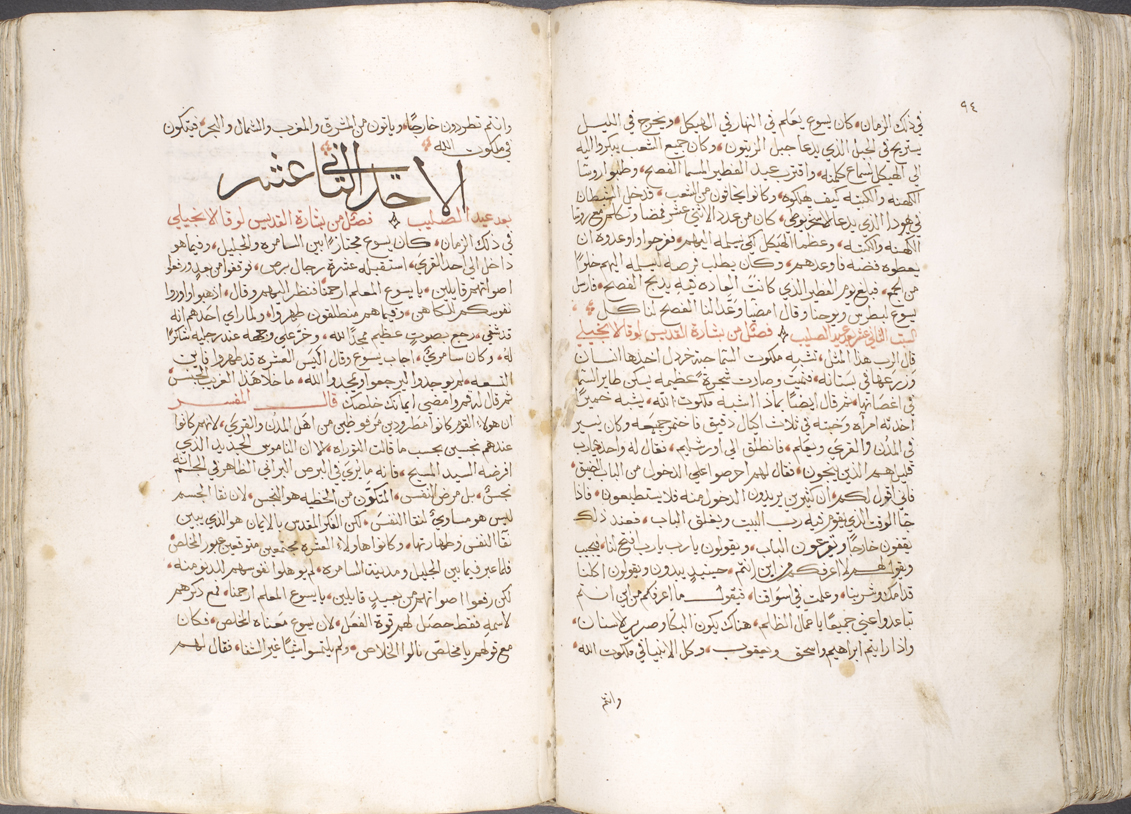 ٩٤
في ذلك الزمان، كان يسوع يعلم في النهار في الهيكل، ويخرج في الليل
يستريح في الجبل الذي يدعا جبل الزيتون، وكان جميع الشعب يبكروا اليه
الي الهيكل لسماع كلامه، واقترب عيد الفطير المسما الفصح، وطلبوا روسا
الكهنه والكتبه كيف يهلكوه، وكانوا يخافون من الشعب، فدخل الشيطان
في يهودا الذي يدعا الاسخريوطي، كان من عدد الاثني عشر فمضا وتكلم مع روسا
الكهنه والكتبه، وعظما الهيكل كي يسلمه اليهم، ففرحوا واوعدوه ان
يعطوه فضه فاوعدهم، وكان يطلب فرصه ليسلمه اليهم خلوًا
من الجمع، فبلغ يوم الفطير الذي كانت العاده فيه بذبح الفصح، فارسل
يسوع بطرس ويوحنا وقال امضيا وعدا لنا الفصح لناكل
السبت الثاني عشر بعد عيد الصليب فصل من بشارة القديس لوقا الانجيلي
قال الرب هذا المثل، تشبه ملكوت السما حبة خردل اخذها انسان
وزرعها في بستانه، فنمت وصارت شجرةً عظيمه يسكن طاير السما
في اغصانها، ثم قال ايضًا بماذا اشبه ملكوت الله، يشبه خميرًا
اخذته امرأه وخبته في ثلاث اكيال دقيق فاختمر جميعه وكان يسير
في المدن والقري ويعلم، فانطلق الي اورشليم، فقال له واحد يارب
قليل هم الذين ينجون، فقال لهم احرصوا علي الدخول من الباب الضيق
فاني اقول لكم، ان كثيرين يريدون الدخول منه فلا يستطيعون، فاذا
جا الوقت الذي يقوم فيه رب البيت ويغلق الباب، فعند ذلك
يقفون خارجًا ويقرعون الباب، ويقولون يارب يارب افتح لنا، فيجيب
ويقول لهم لا اعرفكم من اين انتم، حينيذ يبدون ويقولون اكلنا
قدامك وشربنا، وعلمت في اسواقنا، فيقول ما اعرفكم من اين انتم
تباعدوا عني جميعًا يا عمال الظلم، هناك يكون البكا وصرير الاسنان،
واذا رايتم ابراهيم واسحق ويعقوب، وكل الانبيا في ملكوت الله،
وانتم
وانتم تطردون خارجًا، وياتون من المشرق والمغرب والشمال والبحر، فيتكون
في ملكوت الله
الاحد الثاني عشر
بعد عيد الصليب فصل من بشارة القديس لوقا الانجيلي
في ذلك الزمان، كان يسوع مجتازًا بين السامره والجليل، وفيما هو
داخل الي احد القري، استقبله عشرة رجال برص، فوقفوا من بعيد ورفعوا
اصواتهم قايلين، يا يسوع المعلم ارحمنا فنظر اليهم وقال، اذهبوا واوروا
نفوسكم للكاهن، وفيما هم منطلقون طهروا، ولما راي احدهم انه
قد شفي، رجع بصوت عظيم يمجد الله، وخر علي وجهه عند رجليه شاكرًا
له، وكان سامري، اجاب يسوع وقال اليس العشره قد طهروا فاين
التسعه، لم يوجدوا ليرجعوا ويمجدوا الله، ما خلا هذا الغريب الجنس
ثم قال له قم وامضي ايمانك خلصك قال المفسر
ان هولاء القوم كانوا مطرودين مرفوضين من اهل المدن والقري، لانهم كانوا
عندهم نجسين بحسب ما قالت التوراه، لان الناموس الجديد الذي
افرضه السيد المسيح، فانه ما يري في البرص البراني الظاهر في الجسم
نجسٌ، بل مرض النفس، المتكون من الخطيه هو النجس، لان نقا الجسم
ليس هو مساويٌ لنقا النفس، لكن الفكر المقدس بالايمان هو الذي يبين
نقا النفس وطهارتها، وكانوا هاولاء العشره مجتمعين متوقعين عبور المخلص
فلما عبر فيما بين الجليل ومدينة السامره، لم يوهلوا نفوسهم للدنو منه،
لكن رفعوا اصواتهم من بعيدٍ قايلين، يا يسوع المعلم ارحمنا، ثم ذكرهم
لاسمه فقط حصل لهم قوة الفعل، لان يسوع معناه المخلص، فكان
مع قولهم يا مخلص نالوا الخلاص، ولم يلتمسوا شيًا غير الشفا، فقال لهم